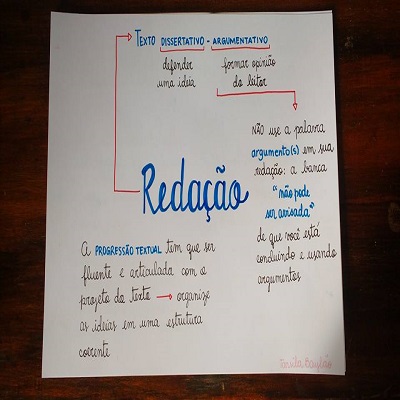 TEXTO DISSERTATIVO - ARGUMENTATIVO
defender uma ideia
formar opinião do leitor
NÃO use a palavra
argumento(s) em sua
redação: a banca
"não pode
ser avisada"
de que você está
concluindo e usando
argumentos
Redação
A PROGRESSÃO TEXTUAL tem que ser
fluente e articulada com o
projeto do texto → organize
as ideias em uma estrutura
coerente